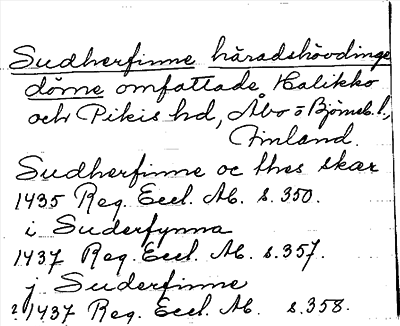 Sudherfinne häradshövdinge
döme omfattade Halikko
och Pikis hd, Åbo o Björneb. l.,
Finland.
Sudherfinne oc thes skær
1435 Reg. Eccl. Ab. s. 350.
i Suderfynna
1437 Reg. Eccl. Ab. s. 357.
j Suderfinne
?1437 Reg. Eccl. Ab. s. 358.